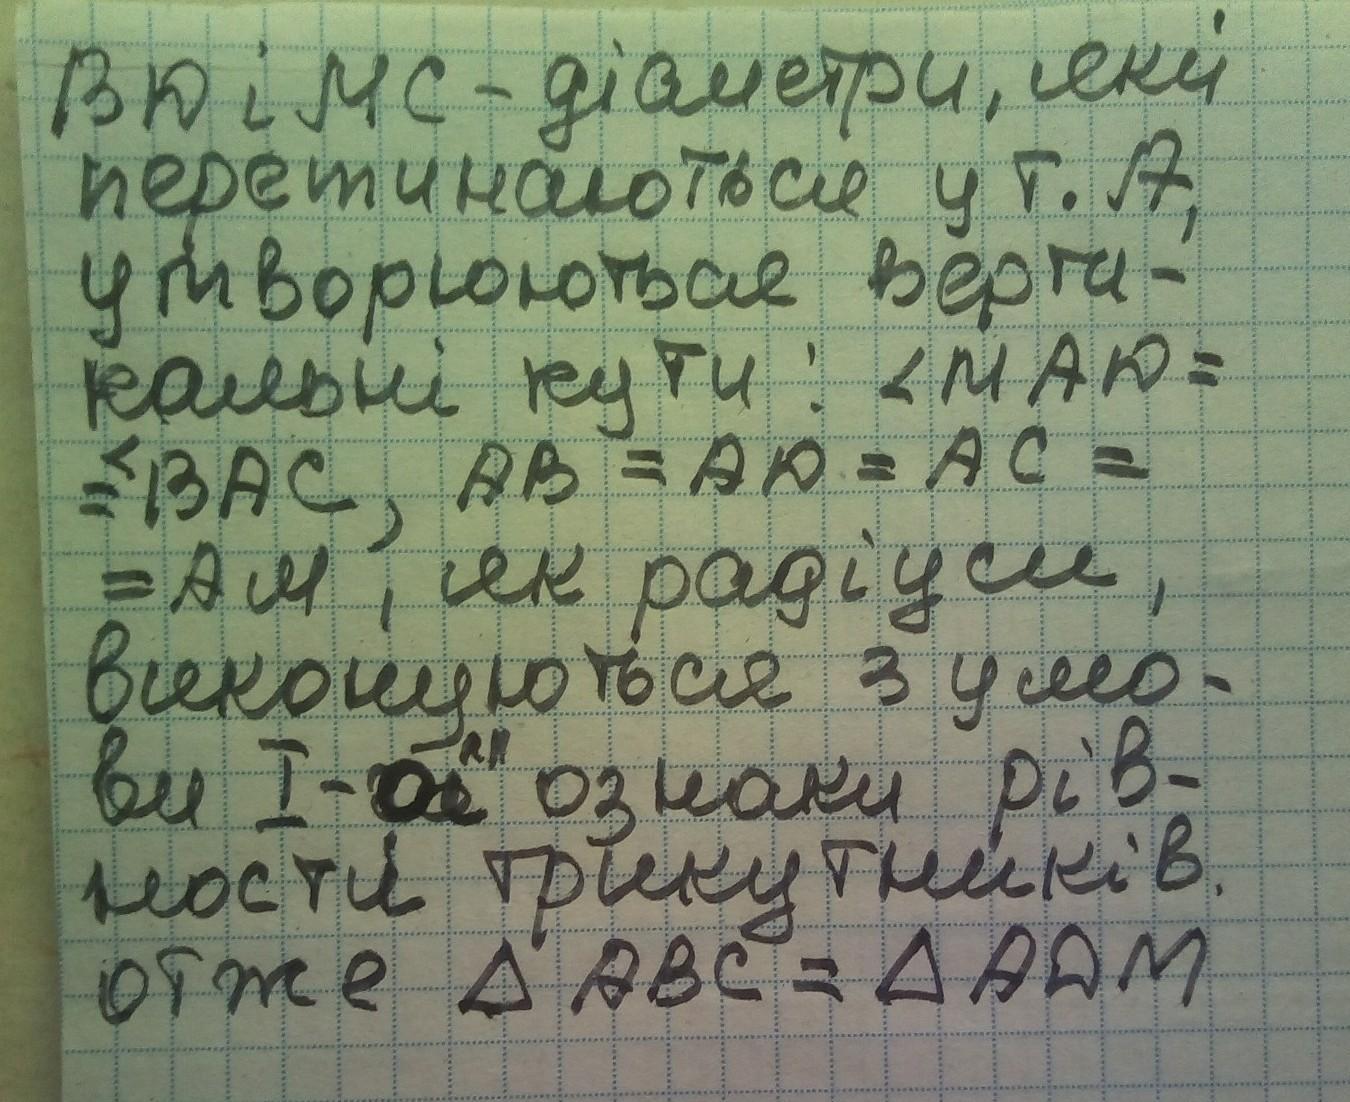 ВД і МС - діаметри, які
перетинаються у т. А,
утворюються верти-
кальні кути: <МАД=
=<ВАС, АВ = АД = АС =
=АМ, як радіуси,
виконуються з умо-
ви І- ознаки рів-
ності трикутників.
отже △ АВС = △ АДМ